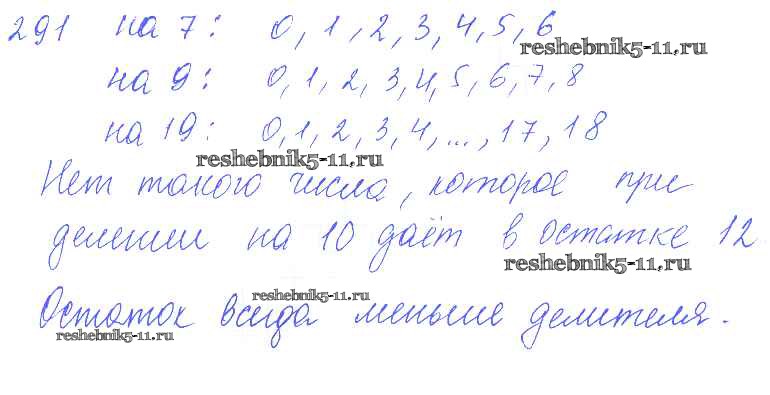 291 на 7: 0, 1, 2, 3, 4, 5, 6
reshebnik5-11.ru
на 9: 0, 1, 2, 3, 4, 5, 6, 7, 8
на 19: 0, 1, 2, 3, 4, ..., 17, 18
reshebnik5-11.ru
Нет такого числа, которое при
делении на 10 даёт в остатке 12
reshebnik5-11.ru
reshebnik5-11.ru
Остаток всегда меньше делителя.
reshebnik5-11.ru